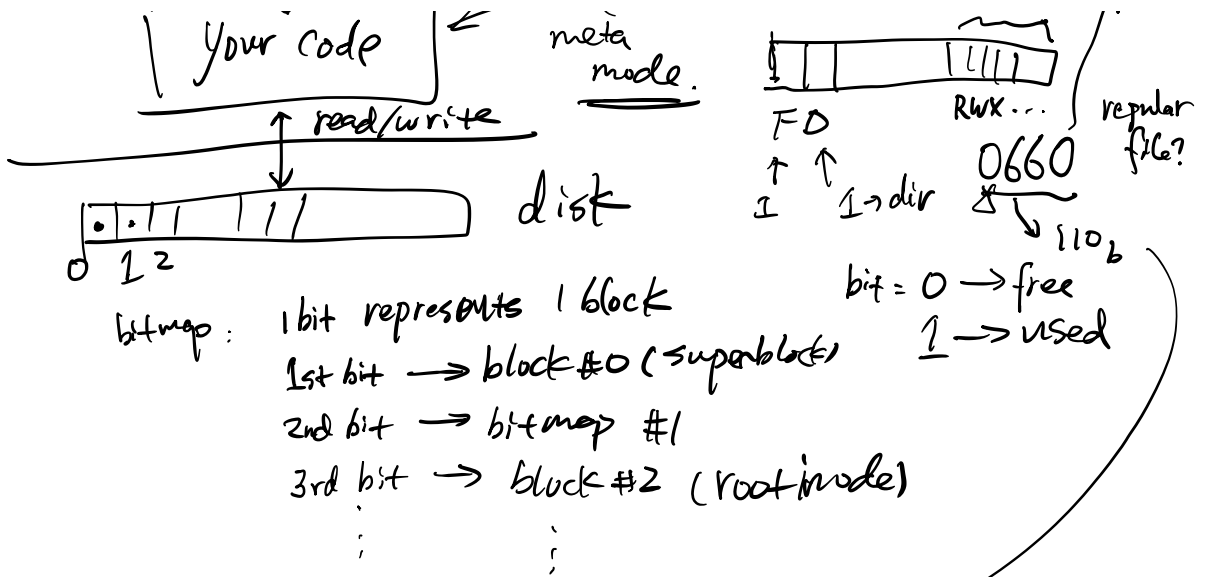 your code
meta
mode.
read/write
disk
0 1 2
1
F D
1
1→dir
RWX...
regular
file?
0660
110b
bit = 0 → free
1 → used
bitmap: 1 bit represents 1 block
1st bit → block #0 (superblock)
2nd bit → bitmap #1
3rd bit → block #2 (root inode)